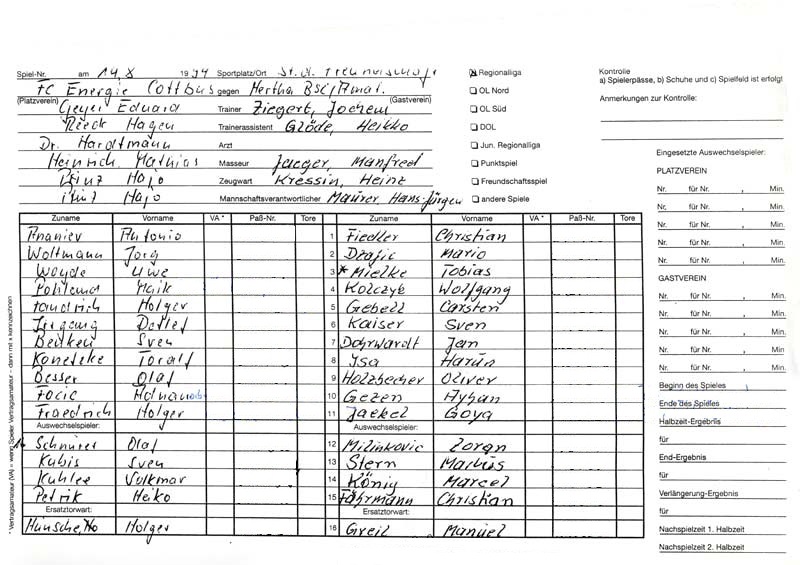 Spiel-Nr. am 14.8 1994 Sportplatz/Ort St. d. Freundschaft
FC Energie Cottbus gegen Hertha BSC/Amat.
(Platzverein) (Gastverein)
Geyer Eduard Trainer Ziegert, Jochem
Reeck Hagen Trainerassistent Glöde, Heikko
Dr. Hardtmann Arzt
Heinrich, Mathias Masseur Jaeger, Manfred
Prinz Hajo Zeugwart Kressin, Heinz
Prinz Hajo Mannschaftsverantwortlicher Maurer, Hans-Jürgen
Regionalliga
OL Nord
OL Süd
DOL
Jun. Regionalliga
Punktspiel
Freundschaftsspiel
andere Spiele
Kontrolle
a) Spielerpässe, b) Schuhe und c) Spielfeld ist erfolgt
Anmerkungen zur Kontrolle:
Zuname Vorname VA* Paß-Nr. Tore Zuname Vorname VA* Paß-Nr. Tore
Ananiev Antonio 1 Fiedler Christian
Woltmann Jörg 2 Dzafic Mario
Woyde Uwe 3 * Mielke Tobias
Pohland Maik 4 Kolczyk Wolfgang
Fandrich Holger 5 Gebell Carsten
Irrgang Detlef 6 Kaiser Sven
Benken Sven 7 Dohrwardt Jan
Konetzke Toralf 8 Isa Harun
Besser Olaf 9 Holzbecher Oliver
Focic Adnan 10 Gezen Ayhan
Fraedrich Holger 11 Jaekel Goya
Auswechselspieler: Auswechselspieler:
Schnürer Olaf 12 Milinkovic Zoran
Kubis Sven 13 Stern Markus
Kuhlee Volkmar 14 König Marcel
Petrik Heiko 15 Fährmann Christian
Ersatztorwart: Ersatztorwart:
Holger 16 Greil Manuel
* Vertragsamateur (VA) = wenn Spieler Vertragsamateur - dann mit x kennzeichnen
Eingesetzte Auswechselspieler:
PLATZVEREIN
Nr. für Nr. , Min.
Nr. für Nr. , Min.
Nr. für Nr. , Min.
Nr. für Nr. , Min.
Nr. für Nr. , Min.
GASTVEREIN
Nr. für Nr. , Min.
Nr. für Nr. , Min.
Nr. für Nr. , Min.
Nr. für Nr. , Min.
Nr. für Nr. , Min.
Beginn des Spieles
Ende des Spieles
Halbzeit-Ergebnis
für
End-Ergebnis
für
Verlängerung-Ergebnis
für
Nachspielzeit 1. Halbzeit
Nachspielzeit 2. Halbzeit